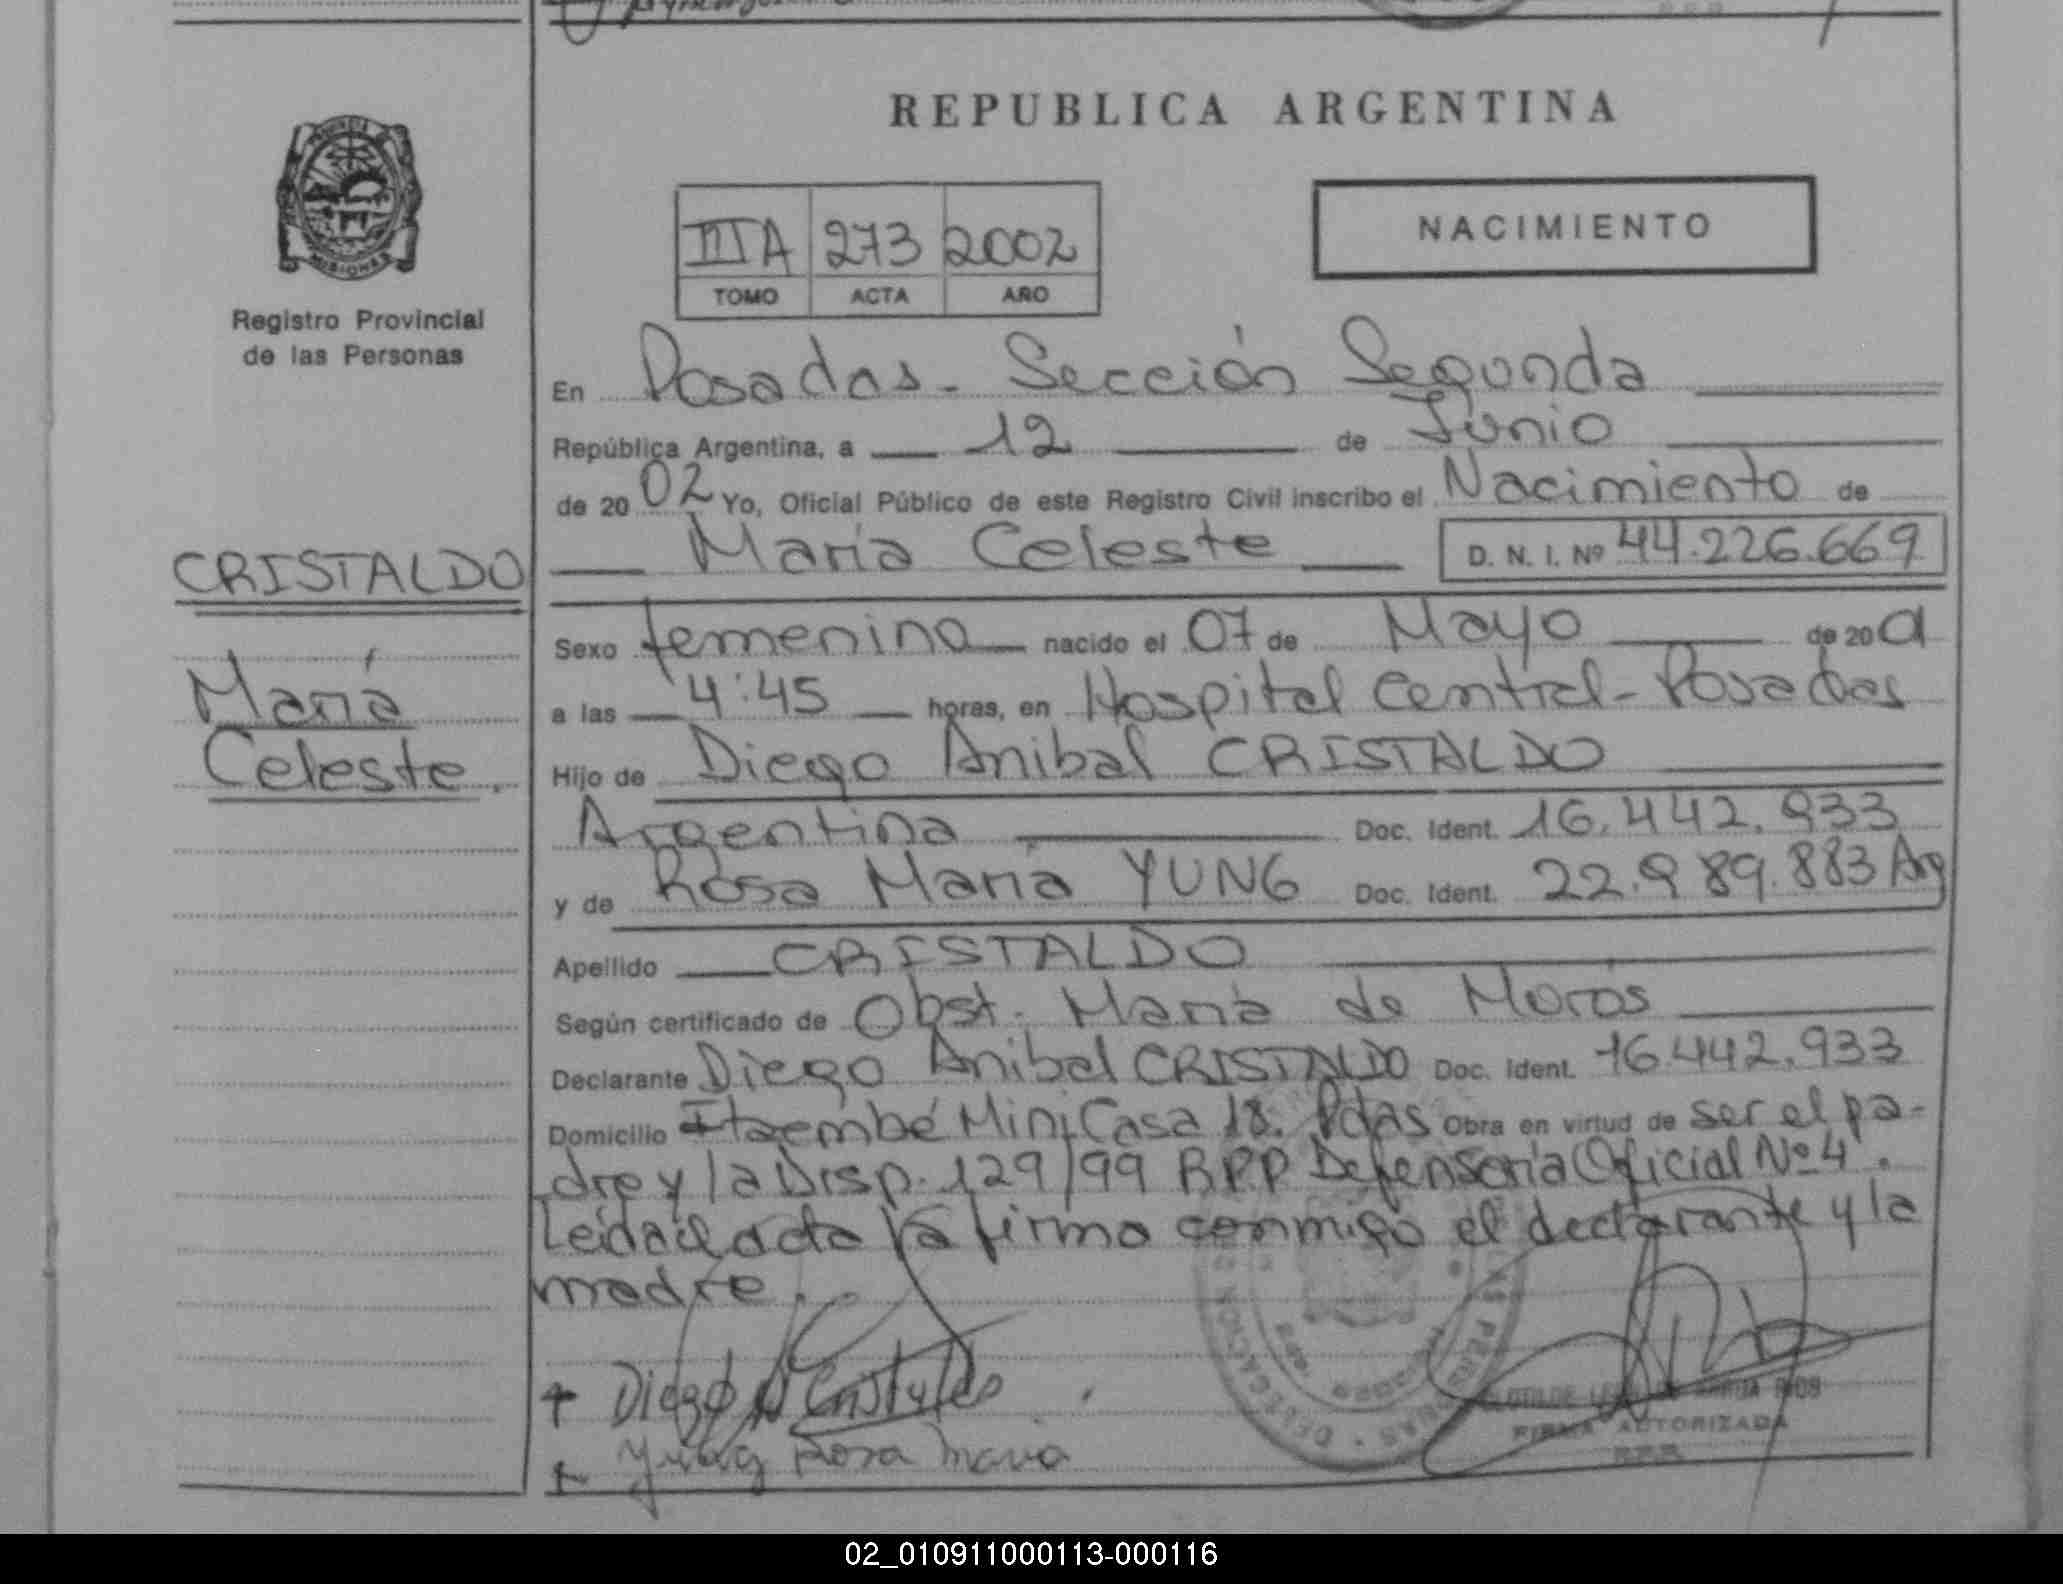 REPUBLICA ARGENTINA
NACIMIENTO
IIIA 273 2002
TOMO ACTA AÑO
PROVINCIA
MISIONES
Registro Provincial
de las Personas
En Posadas - Sección Segunda
República Argentina, a 12 de Junio
de 2002 Yo, Oficial Público de este Registro Civil inscribo el Nacimiento de
María Celeste D. N. I. Nº 44.226.669
CRISTALDO
María
Celeste.
Sexo femenino nacido el 07 de Mayo de 20
a las 4:45 horas, en Hospital Central - Posadas
Hijo de Diego Anibal CRISTALDO
Argentina Doc. Ident. 16.442.933
y de Rosa María YUNG Doc. Ident. 22.989.883 Arg
Apellido CRISTALDO
Según certificado de Obst. María de Moros
Declarante Diego Anibal CRISTALDO Doc. Ident. 16.442.933
Domicilio Itaembé Mini Casa 18. Pdas Obra en virtud de ser el pa-
dre y la Disp. 129/99 R.P.P Defensoría Oficial Nº 4.
Leída el acta la firma conmigo el declarante y la
madre.
+ Diego A Cristaldo
+ Yung Rosa Maria
FIRMA AUTORIZADA
R.P.P.
02_010911000113-000116